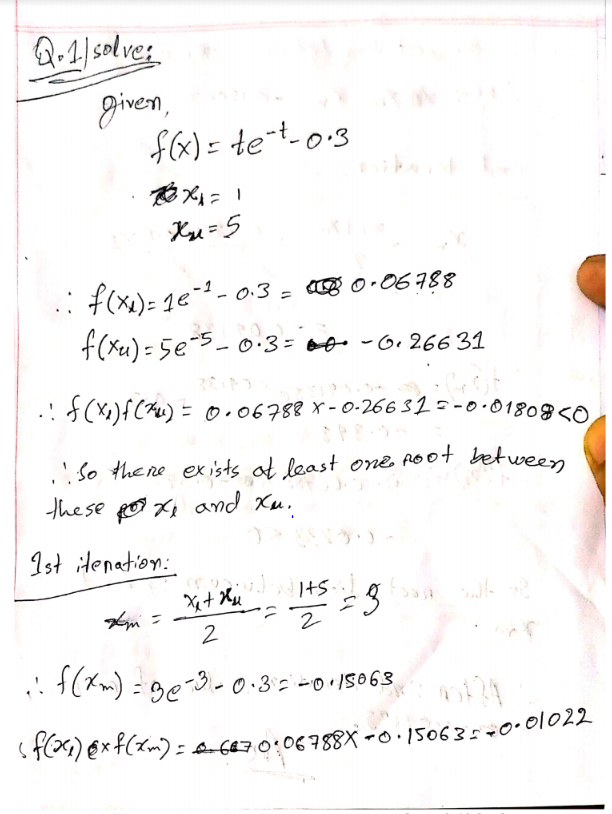 Q.1/ solve:
given,
f(x) = te^-t - 0.3
x_l = 1
x_u = 5
∴ f(x_l) = 1e^-1 - 0.3 = 0.06788
f(x_u) = 5e^-5 - 0.3 = -0.26631
∴ f(x_l) f(x_u) = 0.06788 x -0.26631 = -0.01808 <0
∴ So there exists at least one root between
these x_l and x_u.
1st iteration:
x_m = (x_l + x_u)/2 = (1+5)/2 = 3
∴ f(x_m) = 3e^-3 - 0.3 = -0.15063
f(x_l) x f(x_m) = 0.06788 x -0.15063 = -0.01022